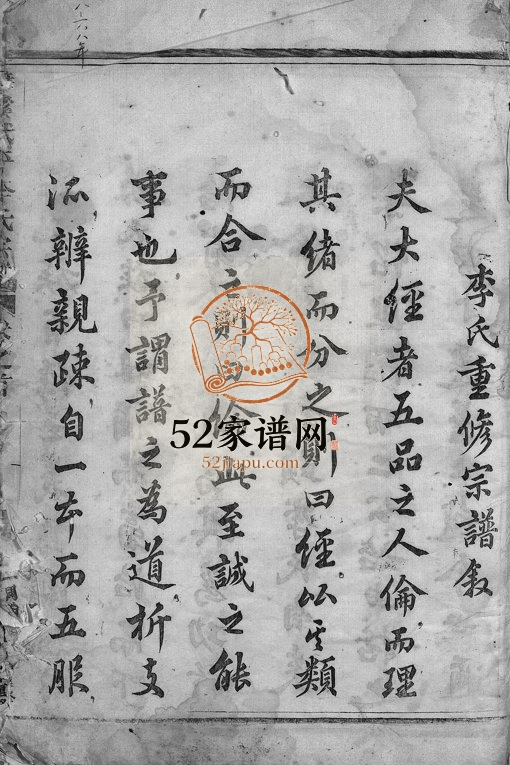 李氏重修宗譜叙
夫大經者五品之人倫而理
其緒而分之則曰經以其類
而合之則曰倫此至誠之能
事也予謂譜之為道析支
派辨親疎自一本而五服
52家谱网
52jiapu.com